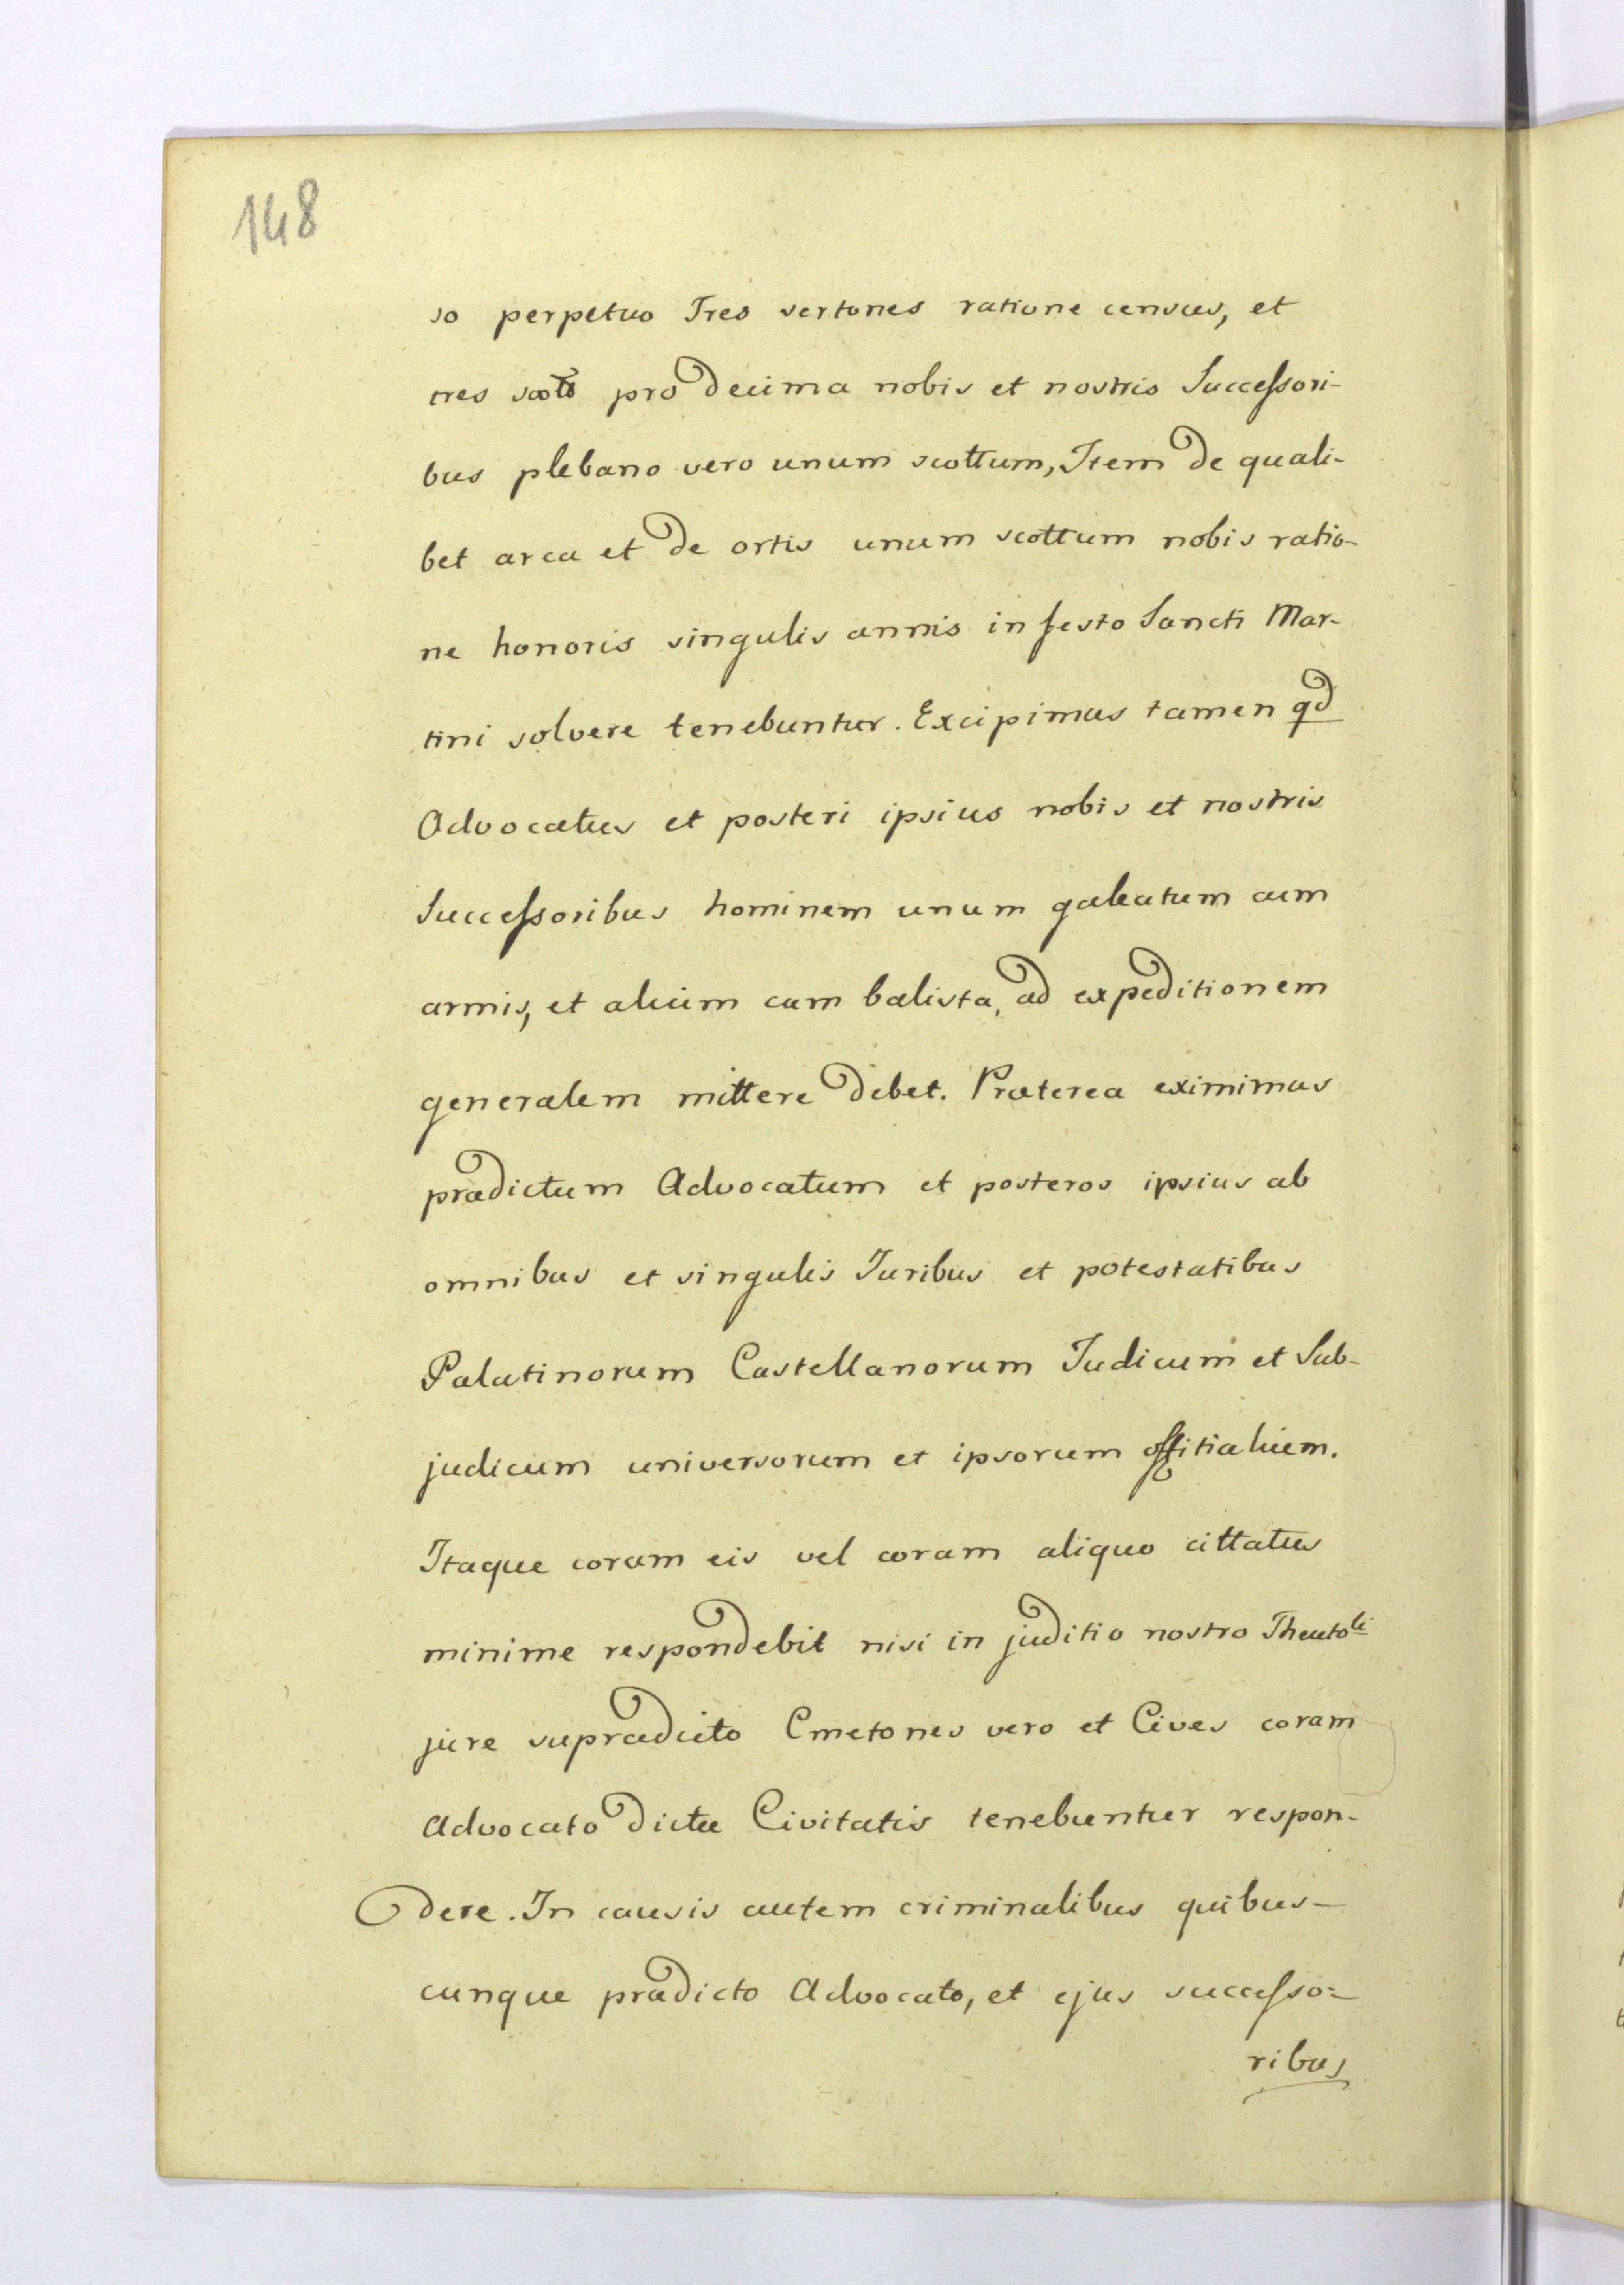 148
so perpetuo Tres vertones ratione census, et
tres pro decima nobis et nostris Successori-
bus plebano vero unum scottum, Item de quali-
bet area et de ortis unum scottum nobis ratio-
ne honoris singulis annis in festo Sancti Mar-
tini solvere tenebuntur. Excipimus tamen qd
Advocatus et posteri ipsius nobis et nostris
Successoribus hominem unum galeatum cum
armis, et alium cum balista, ad expeditionem
generalem mittere debet. Præterea eximimus
prædictum Advocatum et posteros ipsius ab
omnibus et singulis Juribus et potestatibus
Palatinorum Castellanorum Judicum et Sub-
judicum universorum et ipsorum offitialium.
Itaque coram eis vel coram aliquo cittatus
minime respondebit nisi in juditio nostro Theutoli
jure suprædicto Cmetones vero et Cives coram
Advocato dictæ Civitatis tenebuntur respon-
dere. In causis autem criminalibus quibus-
cunque prædicto Advocato, et ejus successo=
ribus